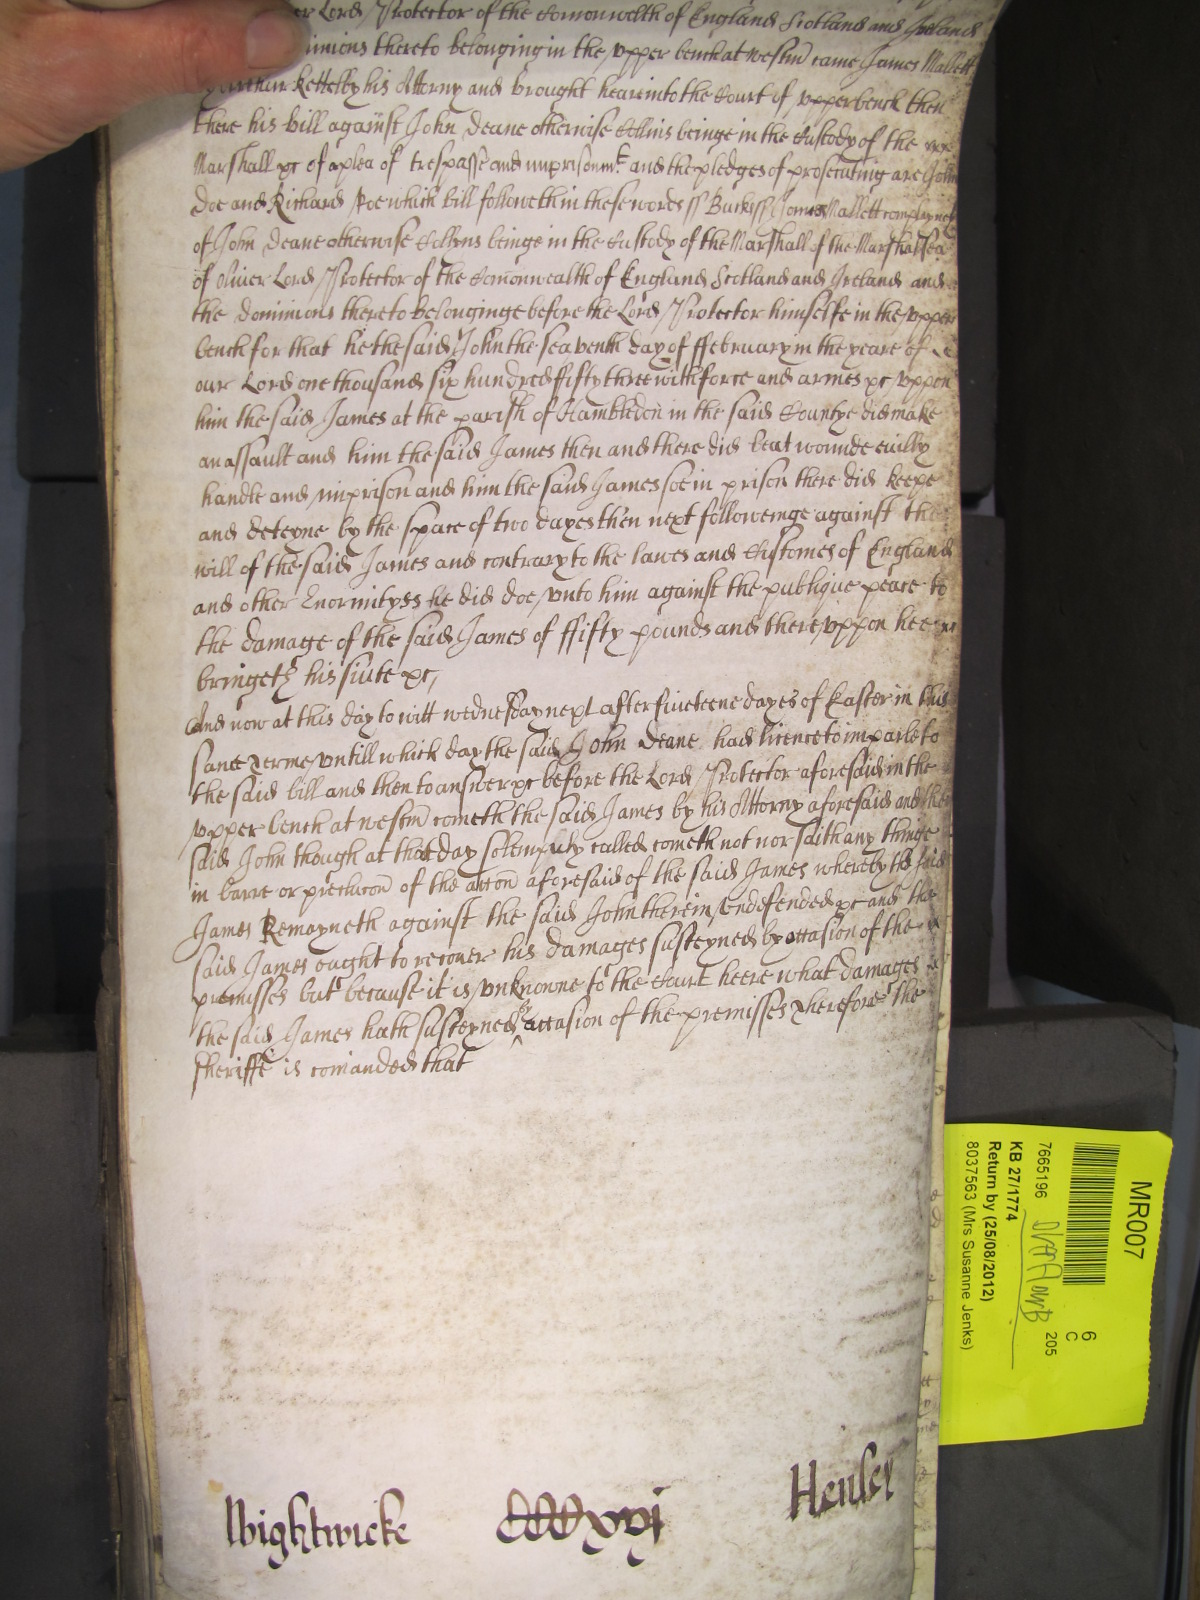 er Lord Protector of the Comonwelth of England Scotland and Ireland
minions thereto belonging in the upper bench at Westm̄ came James Mallett
Ketelby his Attorny and brought heare into the Court of upper bench then
there his bill against John Deane otherwise Collins beinge in the Custody of the
Marshall &c of a plea of trespasse and imprisonmt and the pledges of prosecuting are John
Doe and Richard Roe which bill followeth in these words ss Buck ss James Mallett complayneth
of John Deane otherwise Collins beinge in the Custody of the Marshall of the Marshalsea
of Oliver Lord Protector of the Comonwealth of England Scotland and Ireland and
the dominions thereto belonginge before the Lord Protector himselfe in the upper
bench for that he the said John the seaventh day of ffebruary in the yeare of
our Lord one thousand six hundred fifty three with force and armes &c uppon
him the said James at the parish of Hambledon in the said Countye did make
an assault and him the said James then and there did beat wounde evilly
handle and imprison and him the said James soe in prison there did keepe
and deteyne by the space of two dayes then next followeinge against the
will of the said James and contrary to the lawes and Customes of England
and other Enormityes he did doe unto him against the publique peace to
the damage of the said James of ffifty pounds and thereuppon hee
bringeth his suite &c,
And now at this day to witt wednesday next after fiueteene dayes of Easter in this
same Terme untill which day the said John Deane had licence to imparle to
the said bill and then to answer &c before the Lord Protector aforesaid in the
upper bench at westm̄ cometh the said James by his Attorny aforesaid and the
said John though at that day solempnly called cometh not nor saith any thinge
in barre or preclucon̄ of the accon̄ aforesaid of the said James whereby the said
James Remayneth against the said John therein undefended &c and the
said James ought to recover his damages susteyned by occasion of the
premisses but because it is unknowne to the Court heere what damages
the said James hath susteyned by occasion of the premisses Therefore the
sheriffe is comanded that
Wightwicke CCCxvj Henley
MR007
6
C
205
7665196
KB 27/1774
Return by (25/08/2012)
8037563 (Mrs Susanne Jenks)